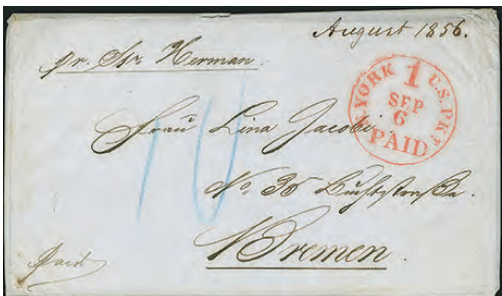 August 1856.
pr. Str. Herman.
YORK 1 U.S. PKT
SEP
6
PAID
10
Frau Lina Jacobi,
No. 30
Bremen.
Paid